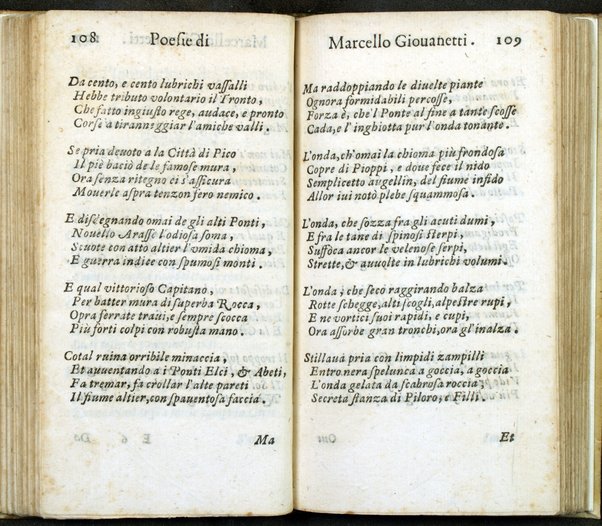 108 Poesie di
Da cento, e cento lubrichi vassalli
Hebbe tributo volontario il Tronto,
Che fatto ingiusto rege, audace, e pronto
Corse a tiranneggiar l'amiche valli.
Se pria deuoto a la Città di Pico
Il piè baciò de le famose mura,
Ora senza ritegno ei s'assicura
Mouerle aspra tenzon fero nemico.
E disdegnando omai de gli alti Ponti,
Nouello Arasse l'odiosa soma,
Scuote con atto altier l'vmida chioma,
E guerra indice con spumosi monti.
E qual vittorioso Capitano,
Per batter mura di superba Rocca,
Opra ferrate traui, e sempre scocca
Più forti colpi con robusta mano.
Cotal ruina orribile minaccia,
Et auuentando a i Ponti Elci, & Abeti,
Fa tremar, fa crollar l'alte pareti
Il fiume altier, con spauentosa faccia.
Ma
Marcello Giouanetti. 109
Ma raddoppiando le diuelte piante
Ognora formidabili percosse,
Forza è, che'l Ponte al fine a tante scosse
Cada, e l'inghiotta pur l'onda tonante.
L'onda, ch'omai la chioma più frondosa
Copre di Pioppi, e doue fece il nido
Semplicetto augellin, del fiume infido
Allor iui notò plebe squammosa.
L'onda, che sozza fra gli acuti dumi,
E fra le tane di spinosi sterpi,
Suffoca ancor le velenose serpi,
Strette, & auuolte in lubrichi volumi.
L'onda, che seco raggirando balza
Rotte schegge, alti scogli, alpestre rupi,
E ne vortici suoi rapidi, e cupi,
Ora assorbe gran tronchi, ora gl'inalza.
Stillaua pria con limpidi zampilli
Entro nera spelunca a goccia, a goccia
L'onda gelata da scabrosa roccia
Secreta stanza di Piloro, e Filli.
Et